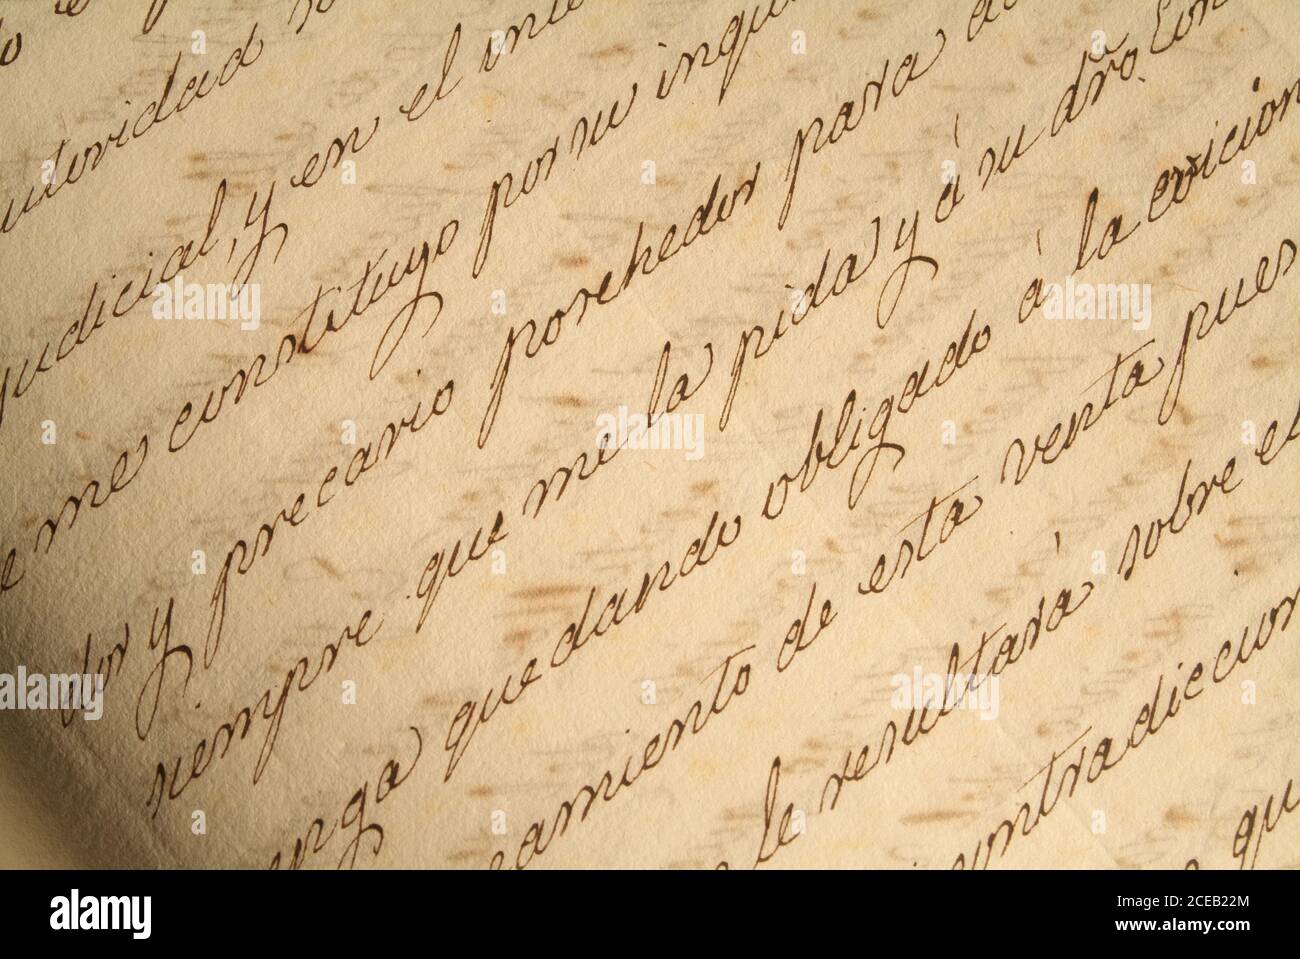 autoridad
judicial, y en el
me constituyo por su inqui
dor y precario porehedor para
siempre que me la pida y á su dro. con
enga quedando obligado á la eviccion
eamiento de esta venta pues
le resultará sobre el
contradiccion
qu
alamy
Image ID: 2CEB22M
www.alamy.com